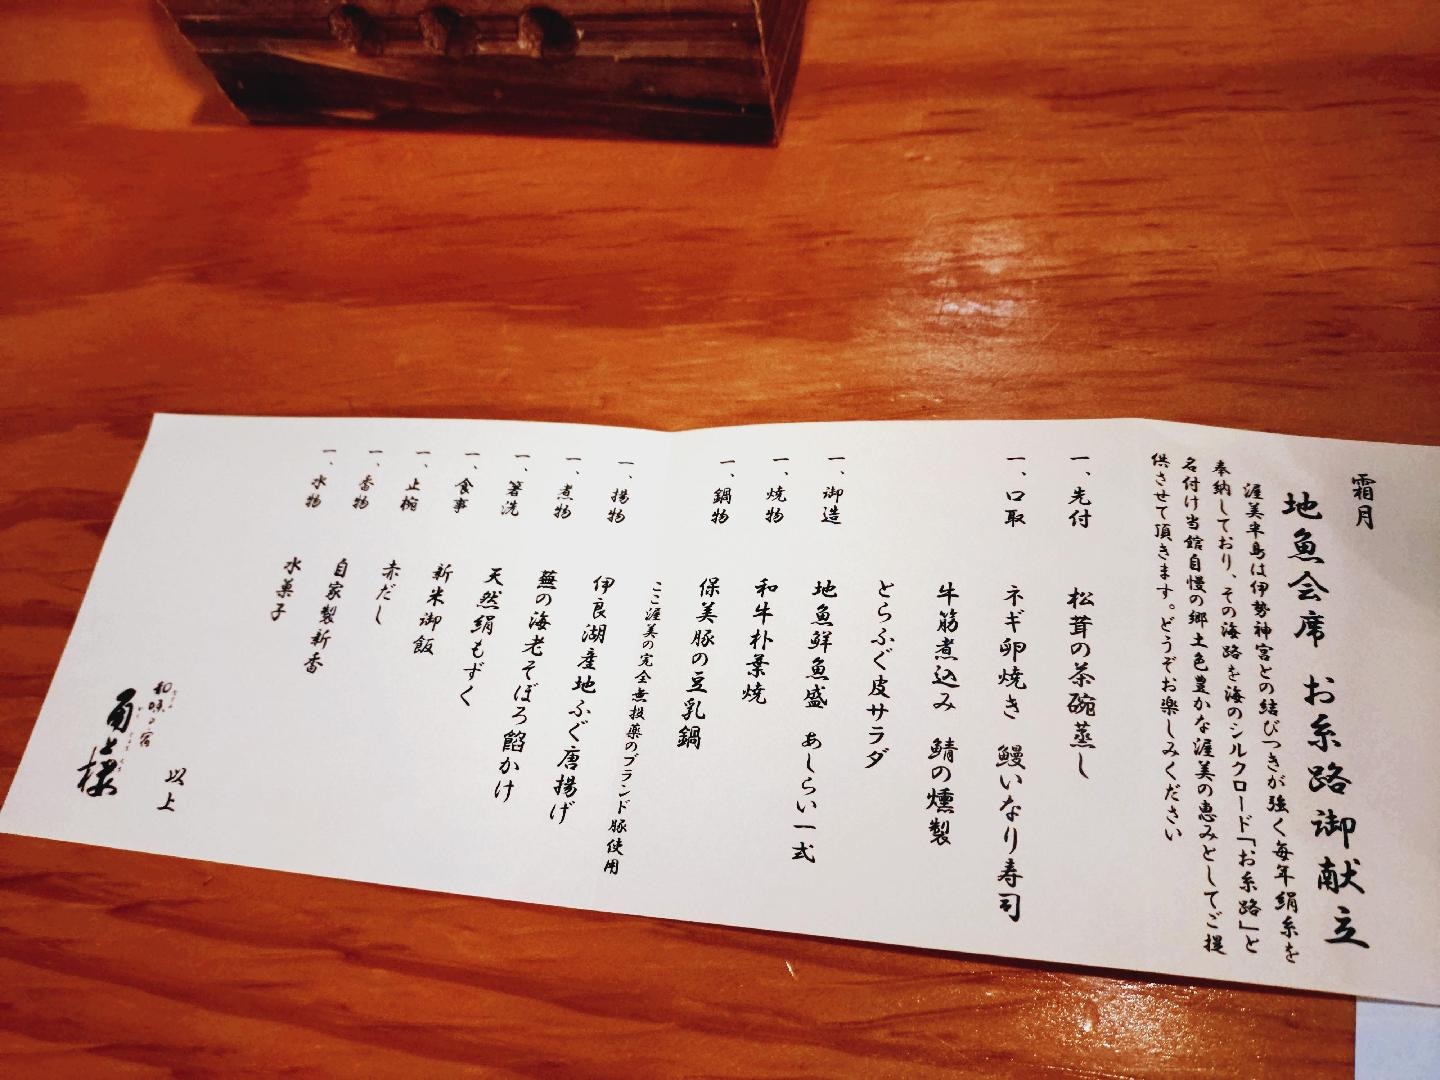 霜月
地魚会席 お糸路御献立
渥美半島は伊勢神宮との結びつきが強く毎年絹糸を
奉納しており、その海路を海のシルクロード「お糸路」と
名付け当館自慢の郷土色豊かな渥美の恵みとしてご提
供させて頂きます。どうぞお楽しみください
一、先付 松茸の茶碗蒸し
一、口取 ネギ卵焼き 鰻いなり寿司
牛筋煮込み 鯖の燻製
とらふぐ皮サラダ
一、御造 地魚鮮魚盛 あしらい一式
一、焼物 和牛朴葉焼
一、鍋物 保美豚の豆乳鍋
ここ渥美の完全無投薬のブランド豚使用
一、揚物 伊良湖産地ふぐ唐揚げ
一、煮物 蕪の海老そぼろ餡かけ
一、箸洗 天然絹もずく
一、食事 新米御飯
一、止椀 赤だし
一、香物 自家製新香
一、水物 水菓子
以上
和味の宿
角上楼